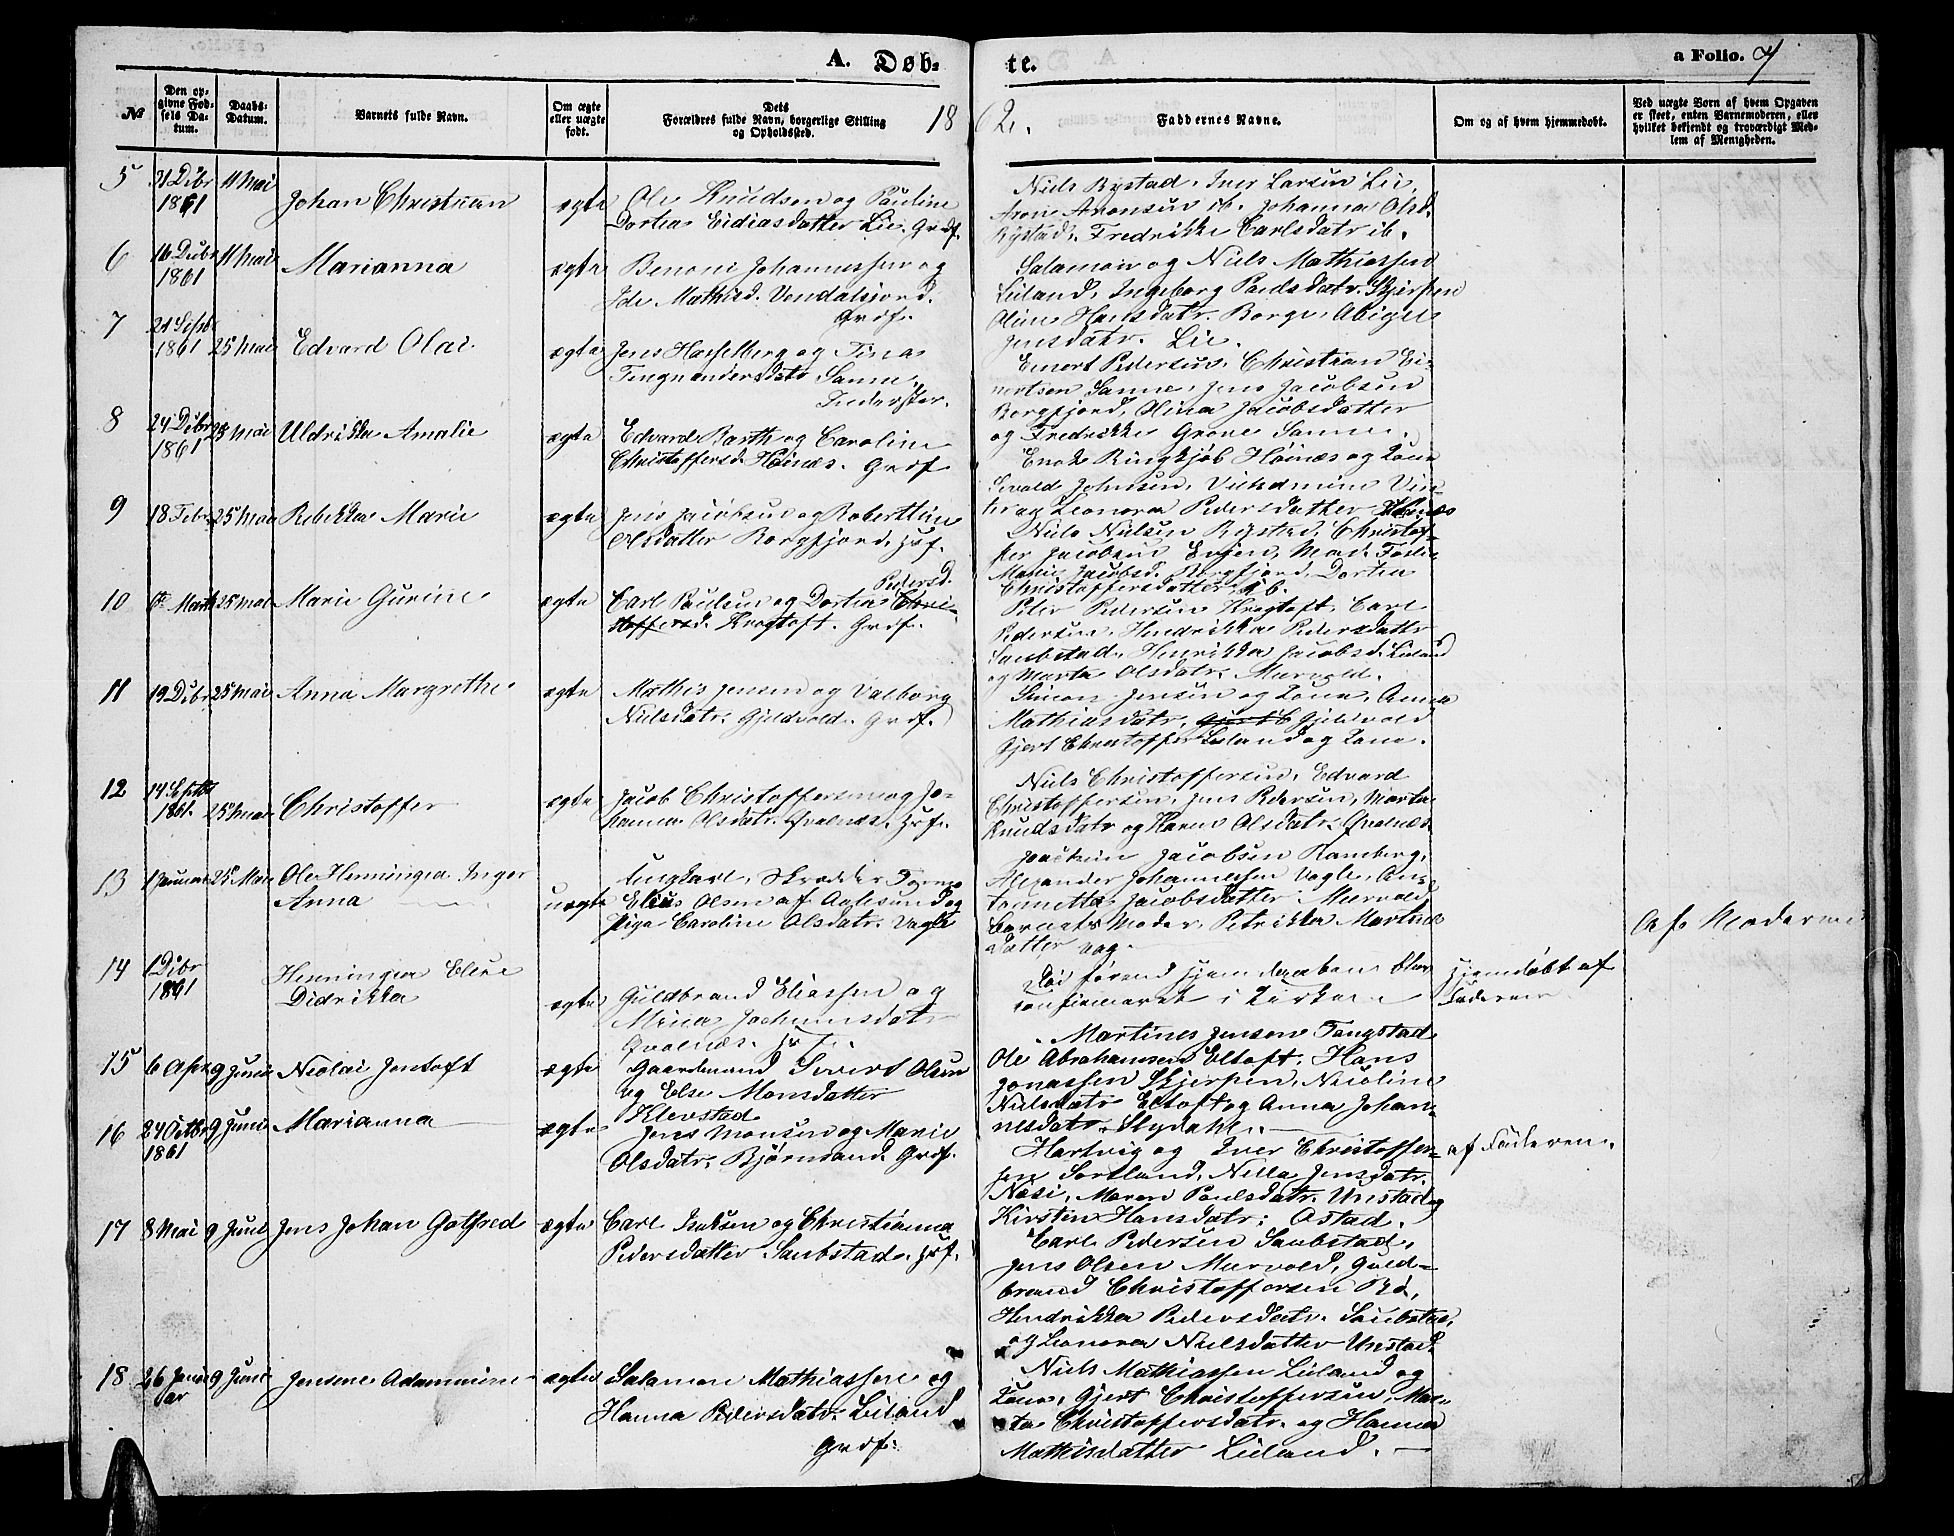 A. Døb-
te.
a Folio. 7
№
Den op-
givne Fød-
sels Da-
tum.
Daabs-
Datum.
Barnets fulde Navn.
Om ægte
eller uægte
født.
Dets
Forældres fulde Navn, borgerlige Stilling
og Opholdssted.
1862.
Faddernes Navne.
Om og af hvem hjemmedøbt.
Ved uægte Børn af hvem Opgaven
er skeet, enten Barnemoderen, eller
hvilket bekjendt og troværdigt Med-
lem af Menigheden.
5
21 Dcbr
1861
11 Mai
Johan Christian
ægte
Ole Knudsen og Pauline
Dortea Eidiasdatter Lie. Grdf.
Niels Rystad, Iver Larsen Lie,
Arone Aronsen ib. Johanna Olsd.
Rystad. Fredrikke Carlsdatr ib.
6
16 Dcbr
1861
11 Mai
Marianna
ægte
Benoni Johannessen og
Ide Mathisd. Vendalsjord.
Grdf.
Salamon og Niels Mathiassen
Leiland, Ingeborg Paulsdatr. Skjerpen
Oline Hansdatr. Borge, Abigel
Jensdatr. Lie.
7
21 Septb
1861
25 Mai
Edvard Olai
ægte
Jens Hasselberg og Tina
Sanne
Einert Pedersen, Christian Ei-
nertsen Sanne, Jens Jacobsen
Borgfjord, Olina Jacobsdatter
og Fredrikke Grove Sanne.
8
24 Dcbr
1861
25 Mai
Uldrikka Amalie
ægte
Edvard Barth og Caroline
Christoffersd. Høinæs. Grdf
Enok Ringkjøb Høinæs og Kone
Sevald Johnsen, Vilhelmine
og Leonora Pedersdatter Høinæs
9
18 Febr.
25 Mai
Rebekka Marie
ægte
Jens Jacobsen og Roberttine
Olsdatter Borgfjord. Hsf.
Niels Nielsen Rystad, Christof-
fer Jacobsen Evjen, Mad.
Marie Jacobsd. Borgfjord, Dortea
Christoffersdatter ib.
10
Marts
25 Mai
Marie Gurine
ægte
Pedersd.
Carl Paulsen og Dortea Chri-
stoffersd. Krogtoft. Grdf.
Peter Pedersen Krogtoft, Carl
Pedersen, Hendrikka Pedersdattr
Saubstad, Henrikka Jacobsd. Leiland
og Marta Olsdatr. Mærvold.
11
19 Dcbr
25 Mai
Anna Margrethe
ægte
Mathis Jensen og Valborg
Nielsdatr. Gjeldvold. Grdf.
Simon Jensen og Kone, Anna
Mathiasdatr, Gjeldvold
Gjert Christoffer Leiland og Kone.
12
14 Septb
1861.
25 Mai
Christoffer
ægte
Jacob Christoffersen og Jo-
hanna Olsdatr. Qvalnæs. Hsf.
Niels Christoffersen, Edvard
Christoffersen, Jens Pedersen, Marta
Knudsdatr og Karen Olsdatr. Qvalnæs
13
1 Januar
25 Mai
Ole Henninger Inger
Anna
uægte
Ungkarl, Skrædder
Elias Olsen af Aalesund og
Pige Caroline Olsdatr. Vagle
Joachim Jacobsen Ramberg,
Alexander Johannessen Vagle, An-
tonetta Jacobsdatter Mærvold,
Barnets Moder, Petrikka Martins
datter Vag.
Af Moderen
14
1 Dcbr
1861
Henningea Elene
Didrikka
ægte
Guldbrand Eliassen og
Mina Jochumsdatr
Qvalnæs. Hsf.
Død førend Hjemmedaaben blev
confirmeret i Kirken
Hjemdøbt af
Faderen
15
6 Apr.
9 Juni
Nicolai Jentoft
ægte
Gaardmand Sivert Olsen
og Else Monsdatter
Klevstad
Martines Jensen Tangstad
Ole Abrahamsen Eltoft, Hans
Jonassen Skjerpen, Nicoline
Nielsdatr Eltoft og Anna Johan-
nesdatr Skydahl.
16
24 Octbr
1861
9 Juni
Marianna
ægte
Jens Monsen og Marie
Olsdatr. Bjørnsand. Grdf.
Hartvig og Iver Christoffer-
sen Sortland, Nilla Jensdatr.
Næsi, Maren Paulsdatr. Unstad og
Kirsten Hansdatr. Ostad.
af Faderen.
17
8 Mai
9 Juni
Jens Johan Gotfred
ægte
Carl Isaksen og Christianna
Pedersdatter Saubstad. Hsf.
Carl Pedersen Saubstad,
Jens Olsen Mærvold, Guld-
brand Christoffersen Bø,
Hendrikka Pedersdatr. Saubstad,
og Leonora Nielsdatter Unstad.
18
26 Janu-
ar
9 Juni
Jensene Adamine
ægte
Salamon Mathiassen og
Hanna Pedersdatr. Leiland
Grdf.
Niels Mathiassen Leiland og
Kone, Gjert Christoffersen, Mar-
ta Christoffersdatr. og Hanna
Mathisdatter Leiland.